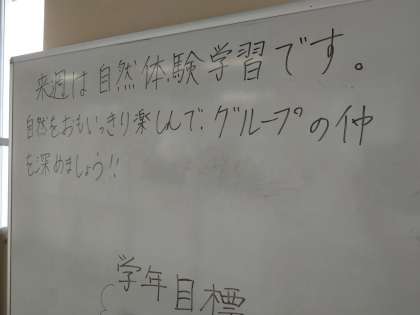 来週は自然体験学習です。
自然をおもいっきり楽しんで、グループの仲
を深めましょう!!
学年目標